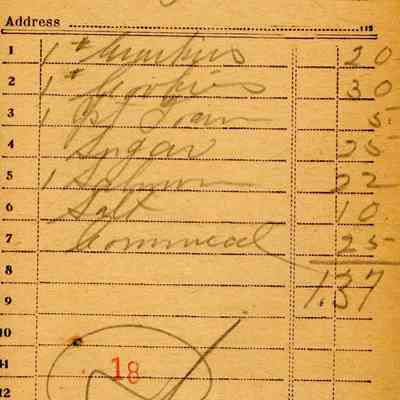 Address
1 1 # Crackers 20
2 1 # Cookies 30
3 1 5
4 Sugar 25
5 1 Salmon 22
6 Salt 10
7 Cornmeal 25
8 1.37
9
10
11 18
12